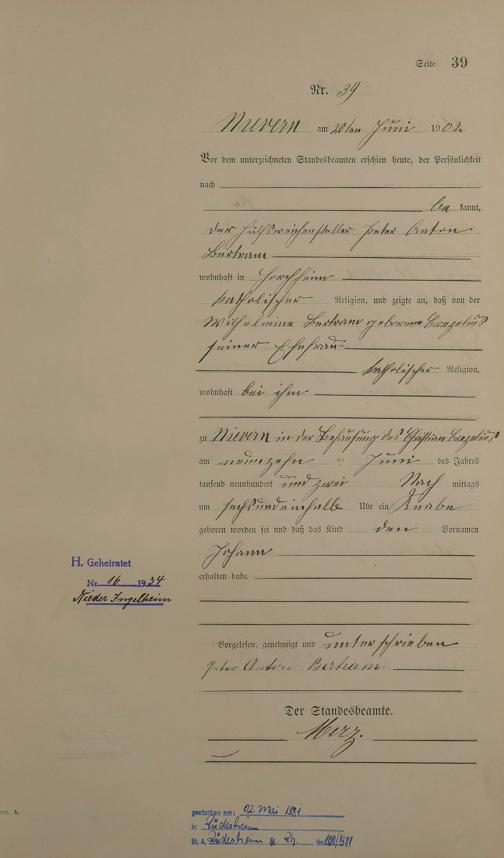 Seite 39
Nr. 39
Nievern am 20ten Juni 1902
Vor dem unterzeichneten Standesbeamten erschien heute, der Persönlichkeit
nach
be kannt,
der Hülfsweichensteller Peter Anton
Bertram
wohnhaft in Horchheim
katholischer Religion, und zeigte an, daß von der
Wilhelmine Bertram geborenen
seiner Ehefrau
katholischer Religion,
wohnhaft bei ihm
zu Nievern in der Behausung des Christian
am neunzehn ten Juni des Jahres
tausend neunhundert und zwei Nach mittags
um sechsundeinhalb Uhr ein Knabe
geboren worden sei und daß das Kind den Vornamen
Johann
erhalten habe.
H. Geheiratet
Nr. 16 1934
Nieder Ingelheim
Vorgelesen, genehmigt und unterschrieben
Peter Anton Bertram.
Der Standesbeamte.
Merz.
gestorben am: 02. Mai 1981
in Rüdesheim
St. A. Rüdesheim a. Rh. Nr. 100/1981